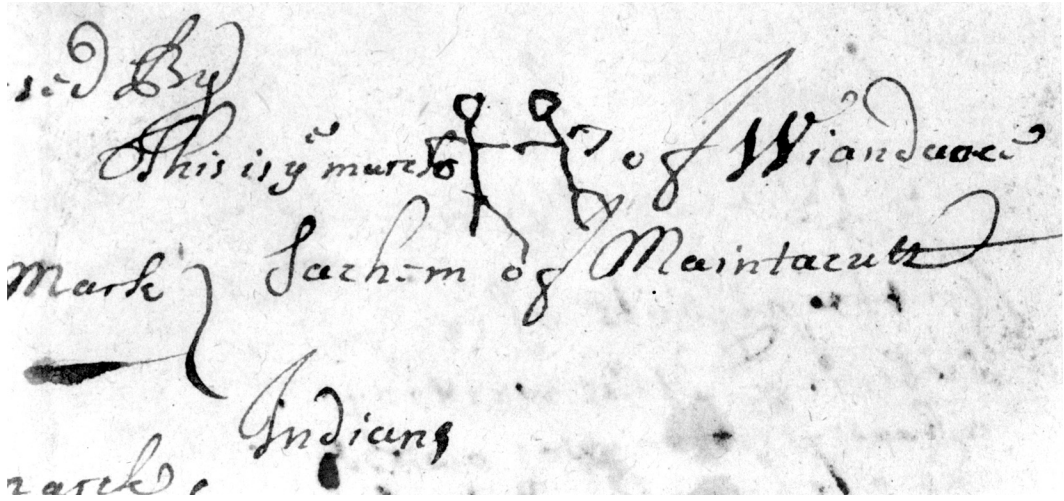 sed By
This is yᵉ marck of Wiandance
Sachem of Maintacutt
Mark
Indians
marck